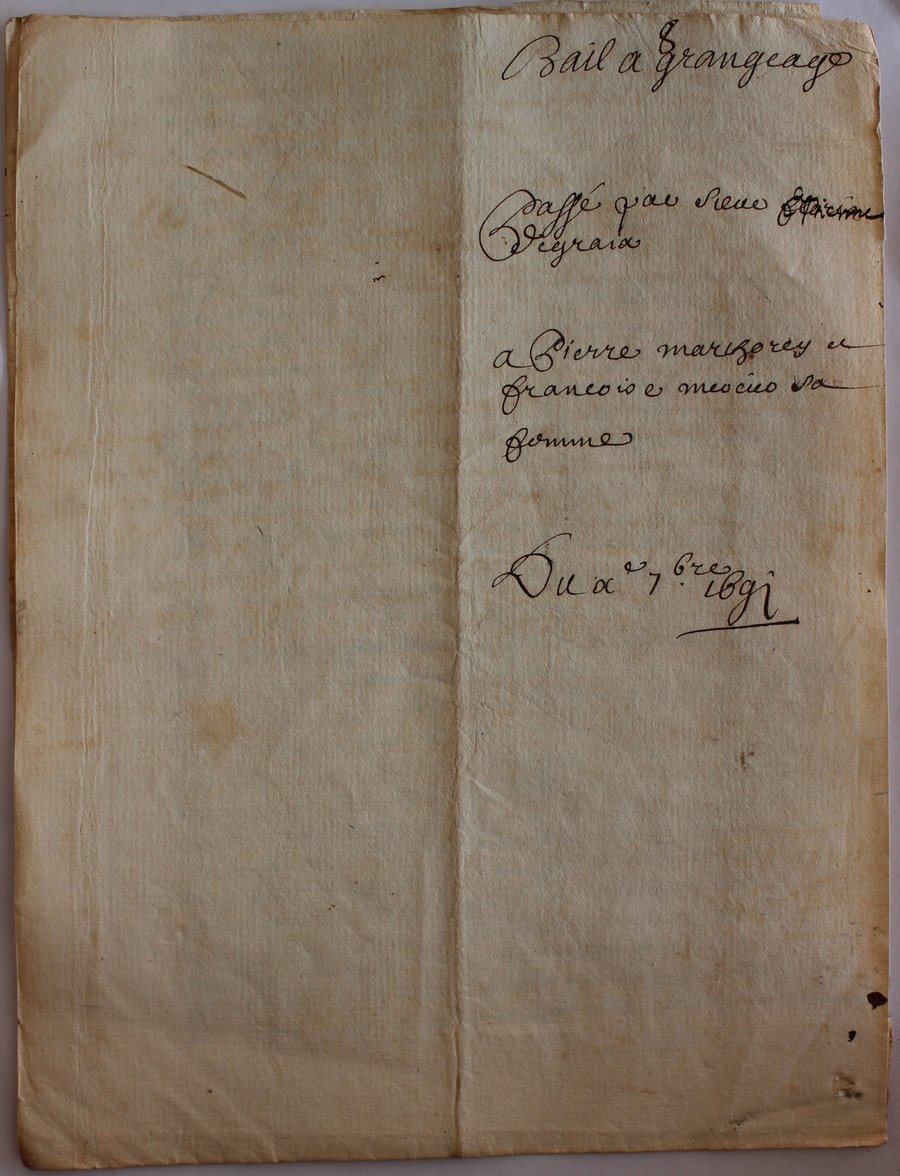 Bail a grangeage
passé par sieur Estienne
Degraia
a Pierre marchorey et
francoise sa
femme
Du 7bre 1691